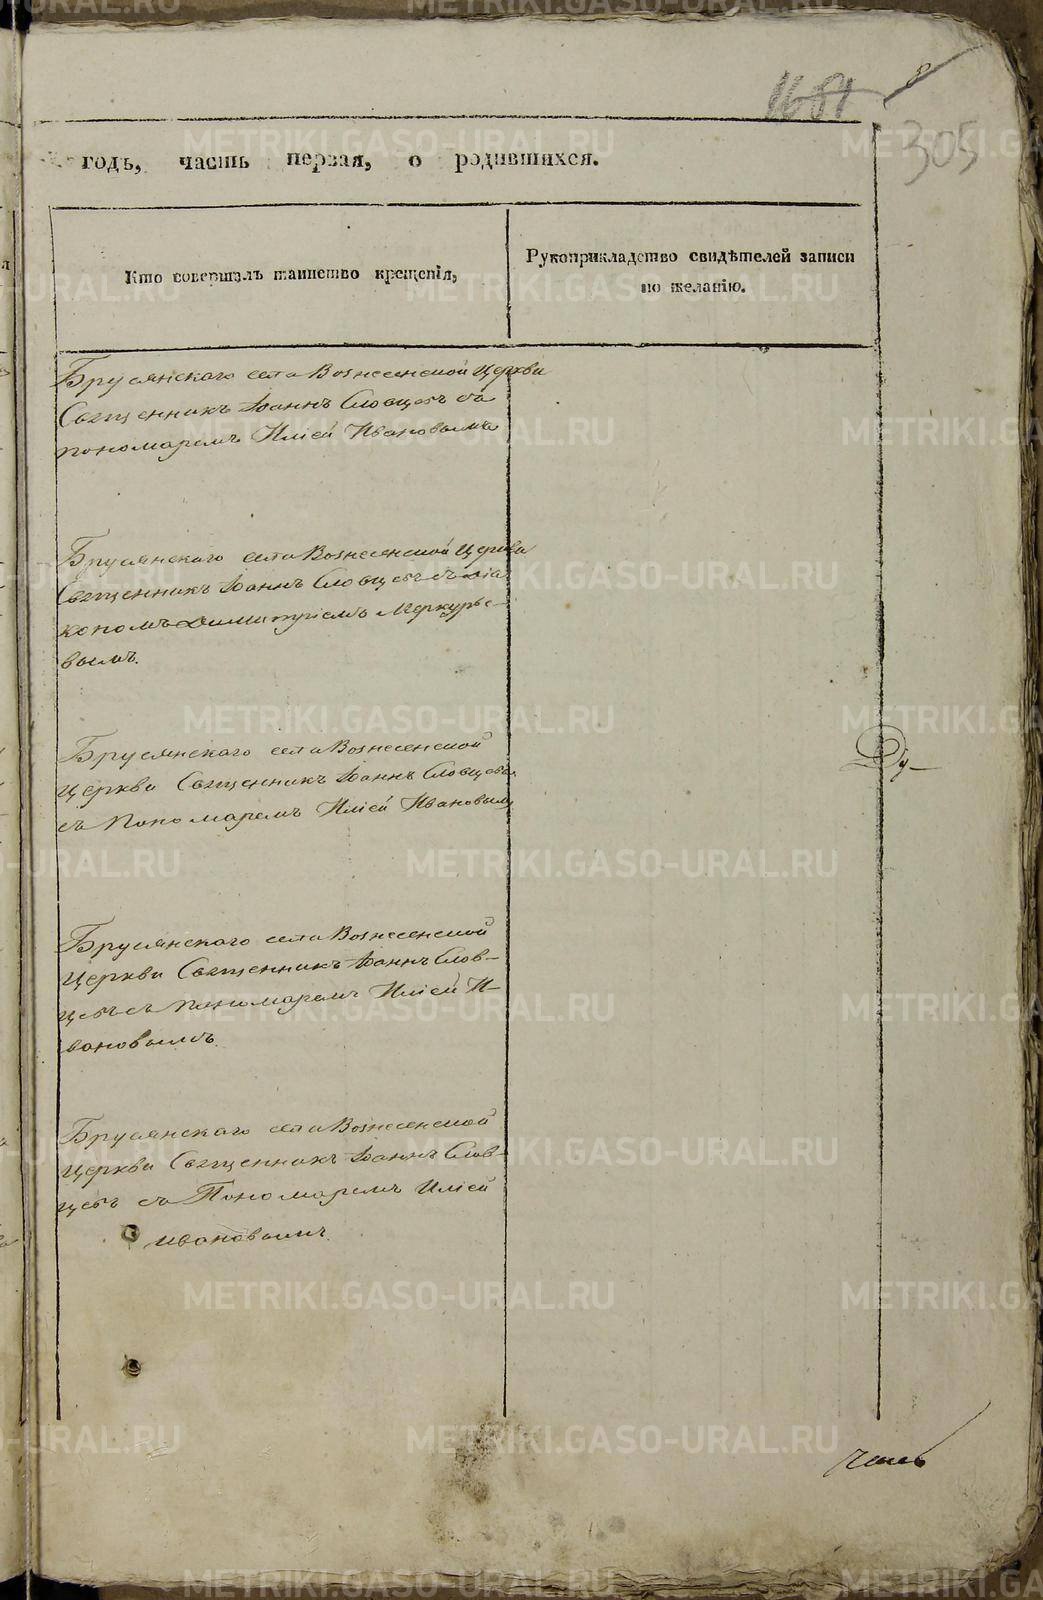 1681
8
305
годъ, часть первая, о родившихся.
Кто совершалъ таинство крещенія,
Рукоприкладство свидѣтелей записи
по желанію.
Бруснянскаго села Вознесенской Церкви
Священникъ Іоаннъ Словцевъ съ
пономаремъ Иліей Ивановымъ
Бруснянскаго села Вознесенской Церкви
Священникъ Іоаннъ Словцевъ съ діа
кономъ Димитріемъ Меркурье-
вымъ.
Бруснянскаго села Вознесенской
Церкви Священникъ Іоаннъ Словцевъ
съ Пономаремъ Иліей Ивановымъ
Бруснянскаго села Вознесенской
Церкви Священникъ Іоаннъ Слов-
цевъ съ пономаремъ Иліей И-
вановымъ.
Бруснянскаго села Вознесенской
Церкви Священникъ Іоаннъ Слов-
цевъ съ Пономаремъ Иліей
Ивановымъ.
Ду-
METRIKI.GASO-URAL.RU